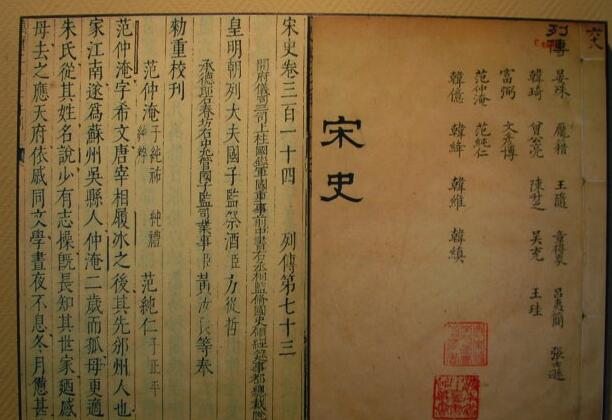 列傳
六八
晏殊 龐籍 王隨 章得象 呂夷簡 張士遜
韓琦 曾公亮 陳升之 吳充 王珪
富弼 文彥博
范仲淹 范純仁
韓億 韓絳 韓維 韓縝
宋史
宋史卷三百一十四 列傳第七十三
開府儀同三司上柱國錄軍國重事前中書右丞相監修國史領經筵事都總裁
皇明朝列大夫國子監祭酒臣方從哲
承德郎右春坊右中允管國子監司業事臣黃汝良等奉
勑重校刊
范仲淹 子純祐 純禮 純粹 范純仁 子正平
范仲淹字希文唐宰相履冰之後其先邠州人也
家江南遂為蘇州吳縣人仲淹二歲而孤母更適
朱氏從其姓名說少有志操既長知其世家迺感
母去之應天府依戚同文學晝夜不息冬月憊甚